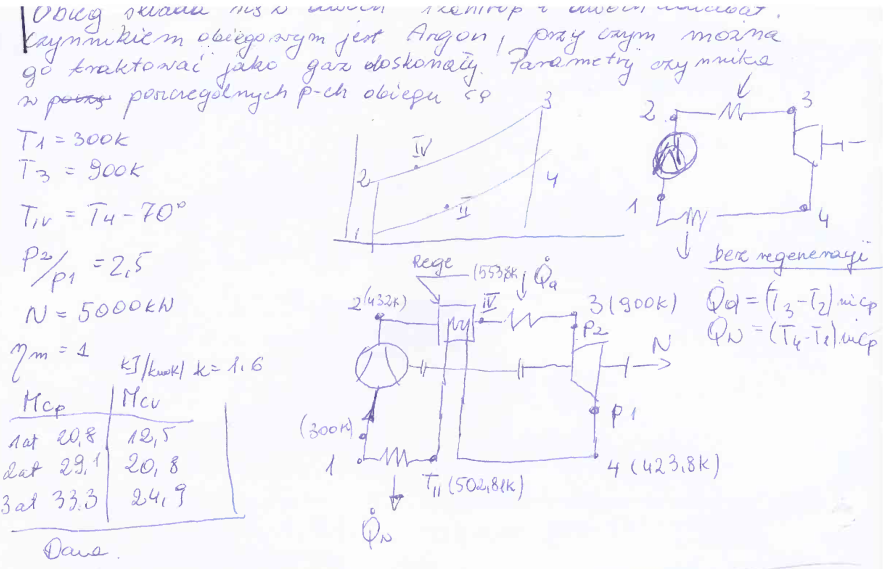 Obieg składa się z dwóch izentrop i dwóch izobar.
Czynnikiem obiegowym jest Argon, przy czym można
go traktować jako gaz doskonały. Parametry czynnika
w poszczególnych p-ch obiegu są
T1 = 300K
T3 = 900K
TIV = T4 - 70°
P2/P1 = 2,5
N = 5000kW
ηm = 1
kJ/kmolK k = 1.6
Mcp Mcv
1at 20,8 12,5
2at 29,1 20,8
3at 33.3 24,9
Dane.
1
2
3
4
IV
II
2
3
1
4
bez regeneracji
Q̇d = (T3 - T2) ṁcp
Q̇w = (T4 - T1) ṁcp
Rege
(553,8K
Q̇d
2(432K)
IV
3 (900K)
P2
N
P1
(300K)
1
TII (502,81K)
4 (423,8K)
Q̇w